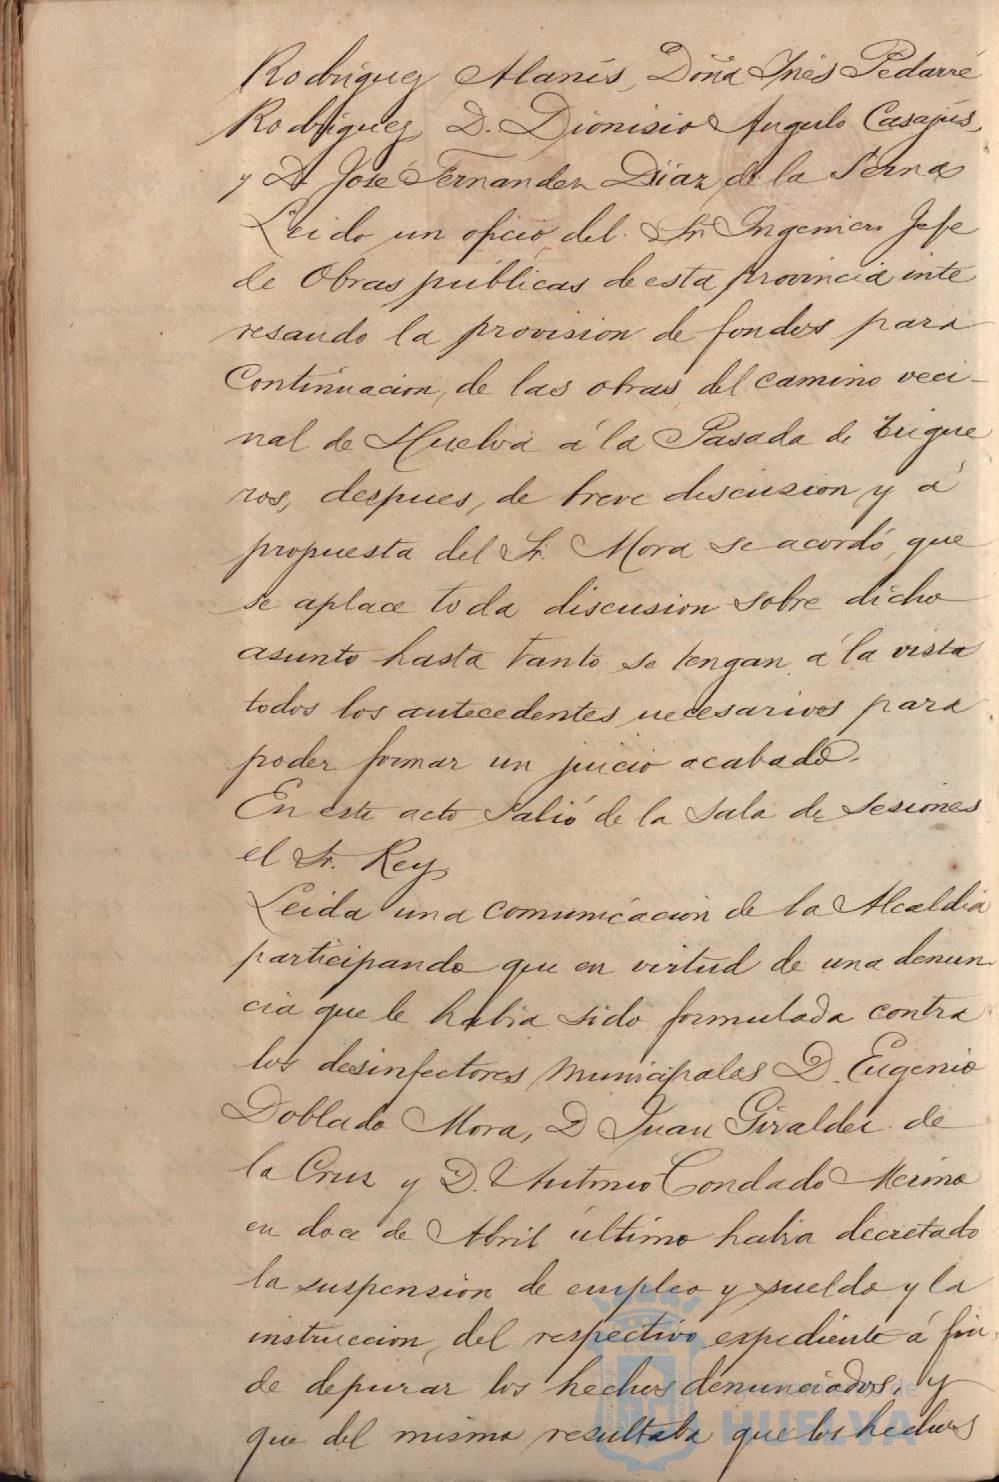 Rodriguez Alanís, Doña Inés Pedarré
Rodriguez, D. Dionisio Angulo Casajús,
y D. José Fernandez Diaz de la Serna
Leido un oficio del Sr. Ingeniero Jefe
de Obras públicas de esta provincia inte
resando la provision de fondos para
Continuacion, de las obras del camino veci-
nal de Huelva á la Pasada de Trigue
ros, despues, de breve discusion y á
propuesta del Sr. Mora se acordó, que
se aplace toda discusion sobre dicho
asunto hasta tanto se tengan á la vista
todos los antecedentes necesarios para
poder formar un juicio acabado.
En este acto salió de la sala de Sesiones
el Sr. Rey,
Leida una comunicacion de la Alcaldia
participando que en virtud de una denun-
cia que le habia sido formulada contra
los desinfectores municipales D. Eugenio
Doblado Mora, D Juan Giraldez de
la Cruz y D. Antonio Condado Merino
en doce de Abril último habia decretado
la suspension de empleo y sueldo y la
instruccion, del respectivo expediente á fin
de depurar los hechos denunciados, y
que del mismo resultaba que los hechos
HUELVA